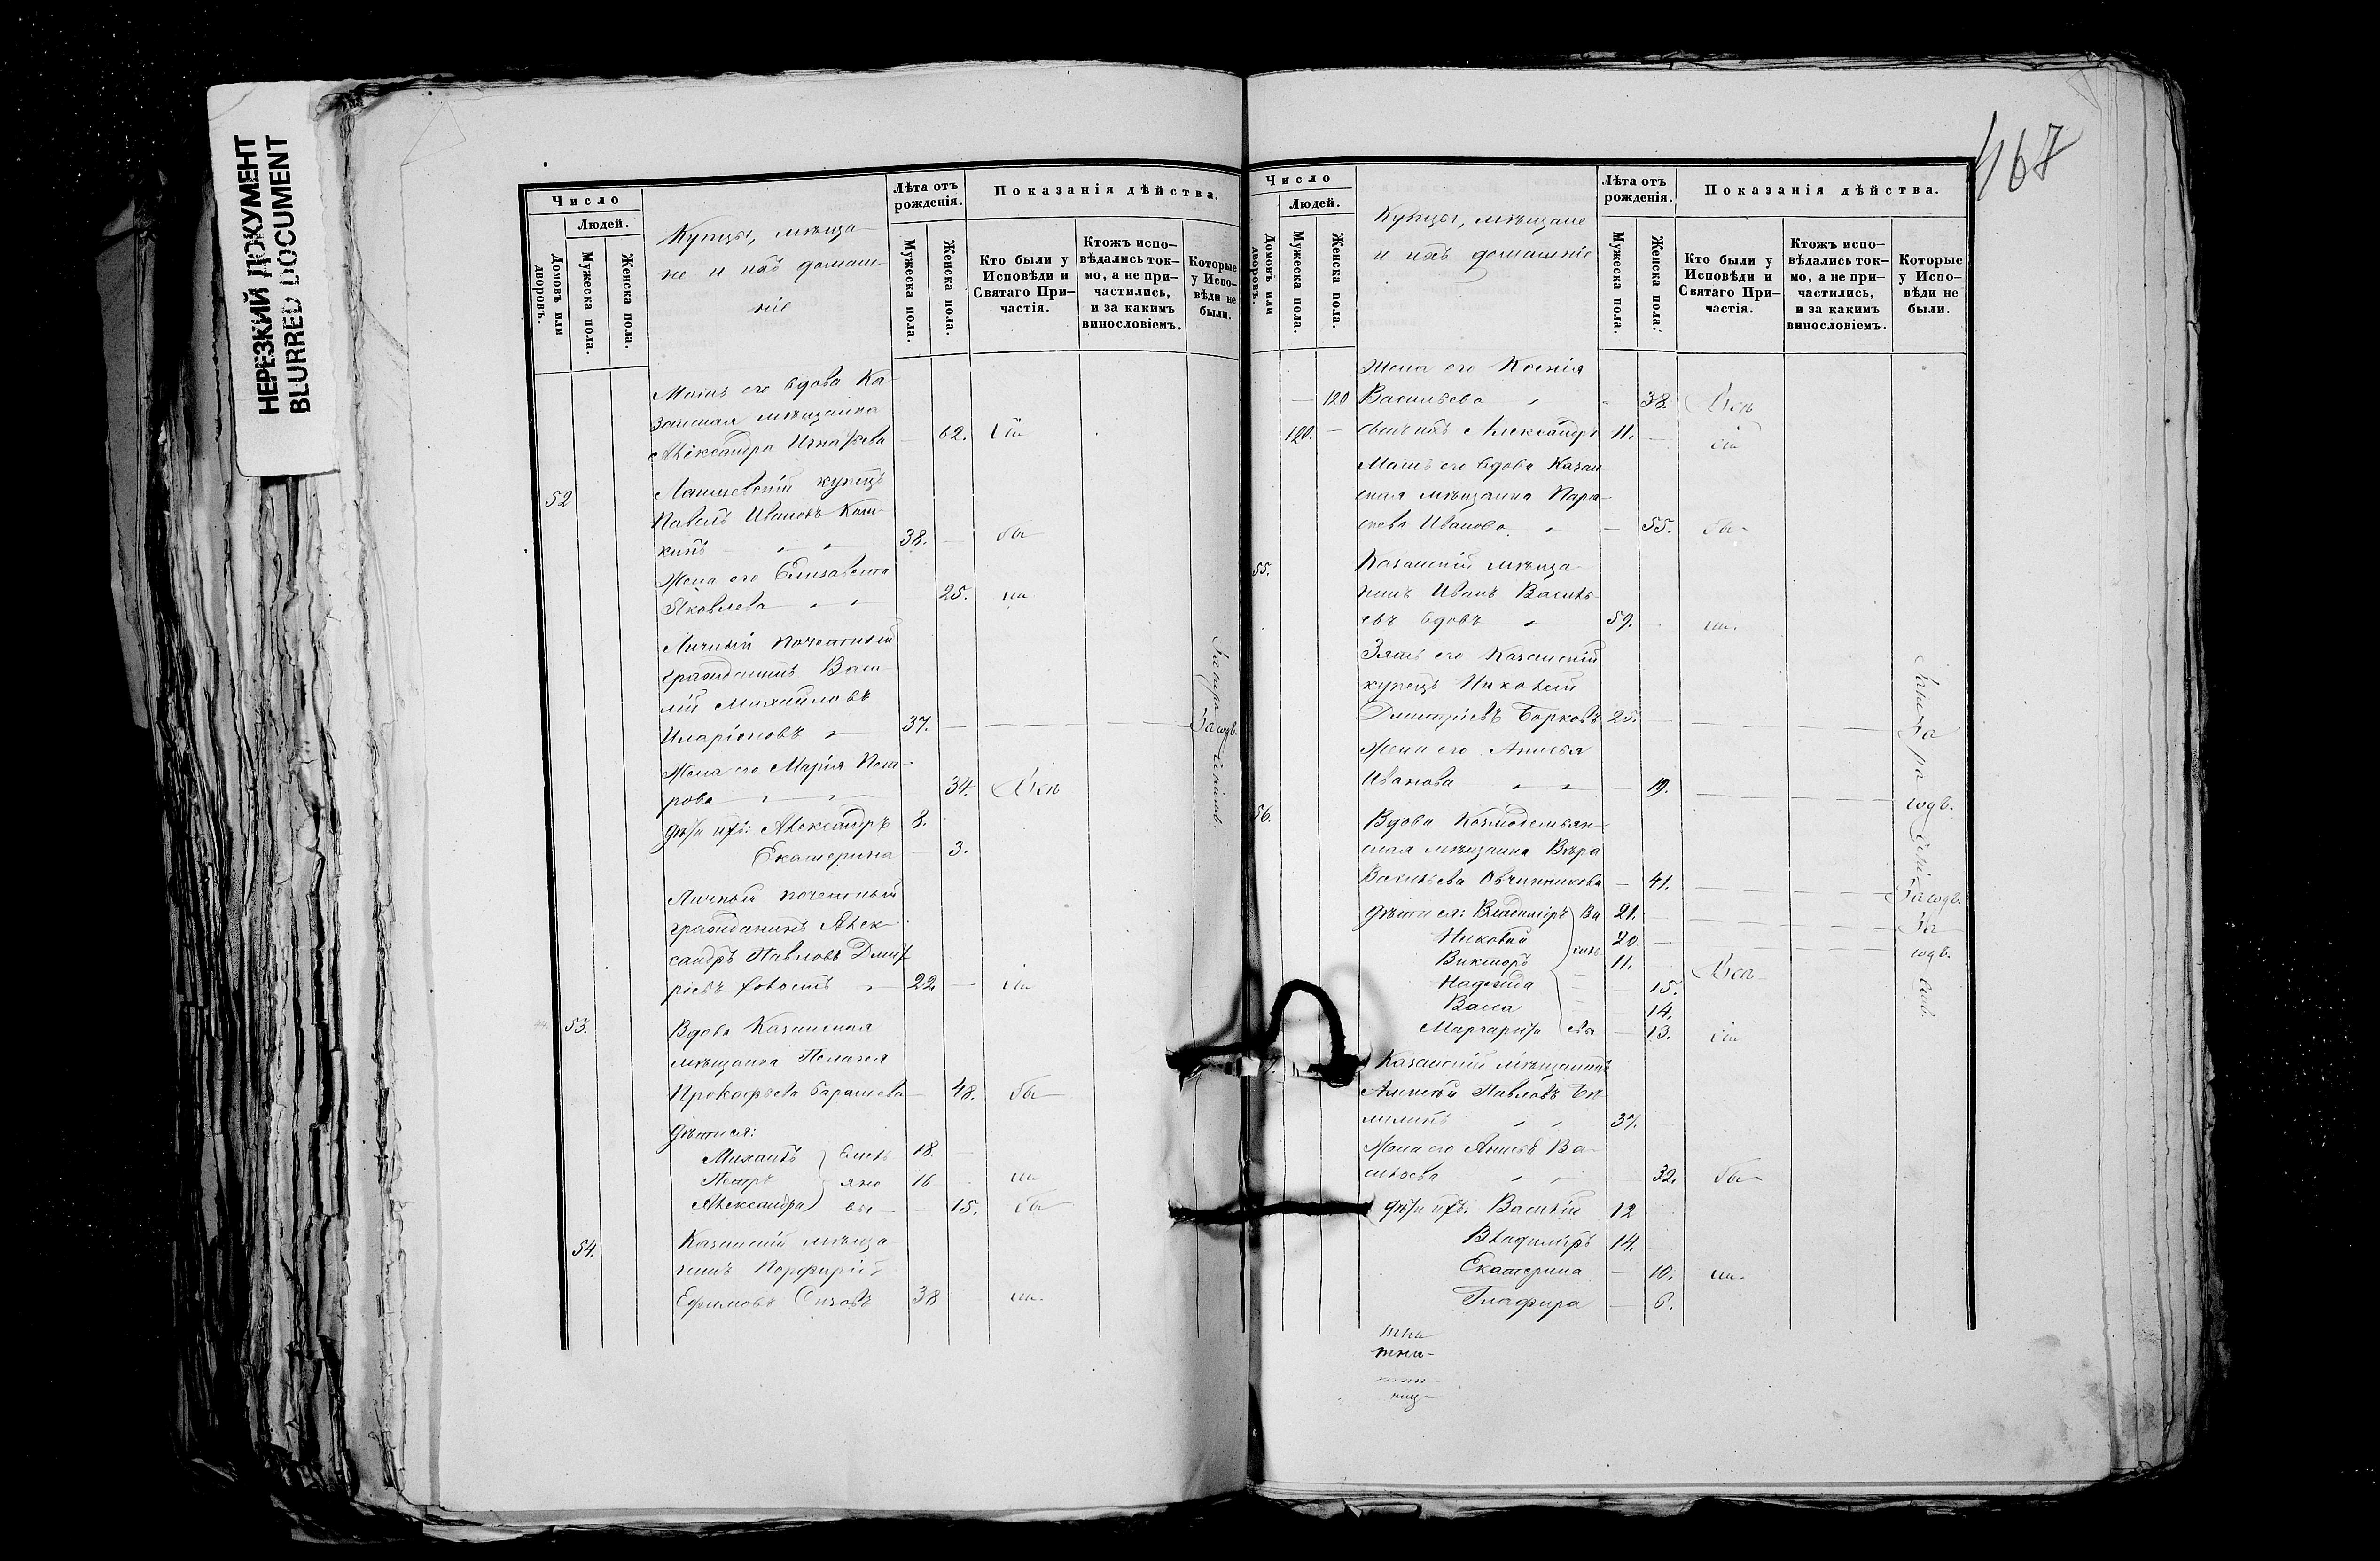 НЕРЕЗКИЙ ДОКУМЕНТ
BLURRED DOCUMENT
Число
Людей.
Домовъ или дворовъ.
Мужеска пола.
Женска пола.
Купцы, мѣща-
не и ихъ домаш-
ніе
Лѣта отъ рожденія.
Мужеска пола.
Женска пола.
Показанія дѣйства.
Кто были у Исповѣди и Святаго При-частія.
Ктожъ испо-вѣдались ток-мо, а не при-частились, и за какимъ винословіемъ.
Которые у Испо-вѣди не были.
Мать его вдова Ка-
занская мѣщанка
Александра Игнатьева — 62.
52
Лаишевскій купецъ
Павелъ Ивановъ
38. — бы
Жена его Елисавета
Яковлева 25. ли
Личный почетный
гражданинъ Васи-
лій Михайловъ
Иларіоновъ 37.
Жена его Марія Пет-
рова 34.
дѣти ихъ: Александръ 8.
Екатерина — 3.
Личный почетный
гражданинъ Алек-
сандръ Павловъ Дмит-
ріевъ холостъ 22.
53.
Вдова Казанская
мѣщанка Пелагея
Прокофьева 48. бы
дѣти ея:
Михаилъ Емель 18.
Петръ яно 16 ли
Александра вы 15. бы
54.
Казанскій мѣща-
нинъ Порфирій
Ефимовъ 38 ли.
467
Число
Людей.
Домовъ или дворовъ.
Мужеска пола.
Женска пола.
Купцы, мѣщане
и ихъ домашніе
Лѣта отъ рожденія.
Мужеска пола.
Женска пола.
Показанія дѣйства.
Кто были у Исповѣди и Святаго При-частія.
Ктожъ испо-вѣдались ток-мо, а не при-частились, и за какимъ винословіемъ.
Которые у Испо-вѣди не были.
Жена его Ксенія
— 120 Васильева 38.
120. — сынъ ихъ Александръ 11. —
Мать его вдова Казан
ская мѣщанка Пара-
скева Иванова — 55. бы
55.
Казанскій мѣща-
нинъ Иванъ Василь-
евъ вдовъ 59. ли.
Зять его Казанскій
купецъ Николай
Дмитріевъ Барковъ 25.
Жена его Анисья
Иванова — 19.
56.
Вдова Козмодемьян-
ская мѣщанка Вѣра
Васильева Овчинникова — 41.
дѣти ея: Владиміръ 21.
Николай 20.
Викторъ 11.
Надежда 15.
Васса 14.
Маргарита — 13.
Казанскій мѣщанинъ
Алексѣй Павловъ
37.
Жена его Анисья Ва-
сильева 32. бы
дѣти ихъ: Василій 12
Владиміръ 14.
Екатерина — 10. ли.
Глафира — 6.